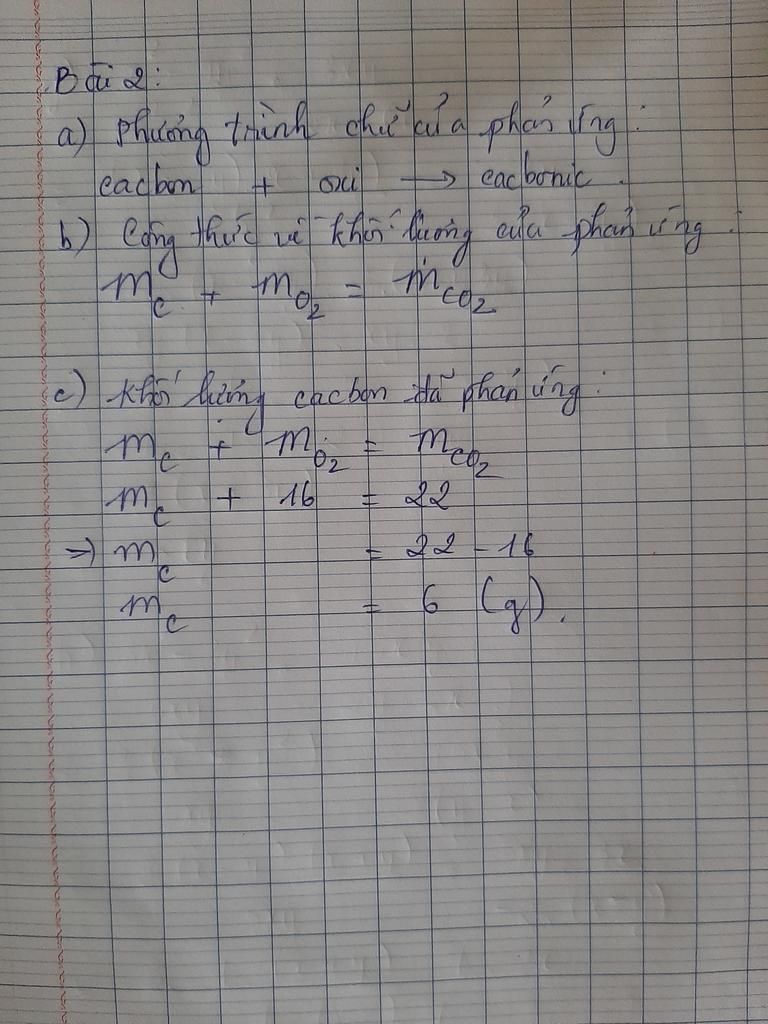 Bài 2:
a) Phương trình chữ của phản ứng:
cacbon + oxi → cacbonic.
b) Công thức về khối lượng của phản ứng:
m_C + m_O₂ = m_CO₂
c) Khối lượng cacbon đã phản ứng:
m_C + m_O₂ = m_CO₂
m_C + 16 = 22
=> m_C = 22 - 16
m_C = 6 (g).